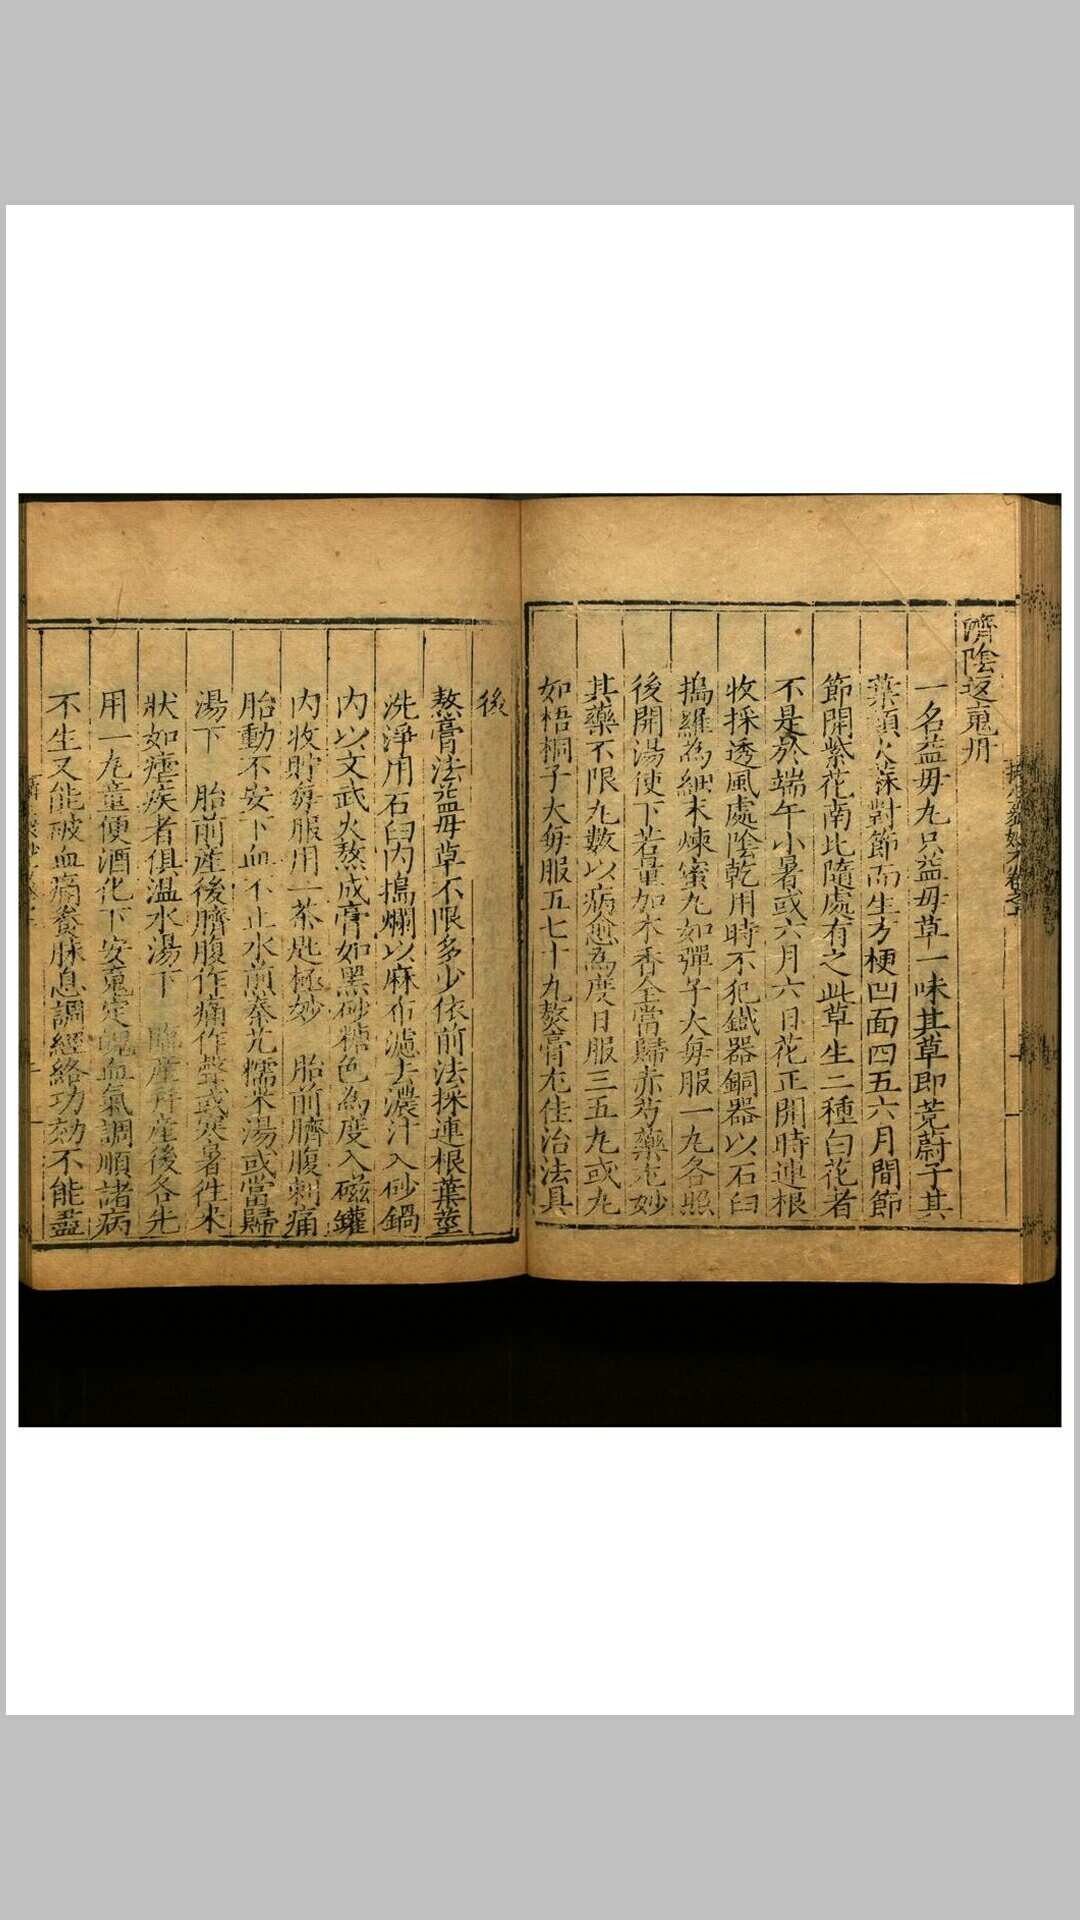 濟陰返䰟丹
一名益母丸只益母草一味其草即茺蔚子其
葉類火蔴對節而生方梗凹面四五六月間節
節開紫花南北隨處有之此草生二種白花者
不是於端午小暑或六月六日花正開時連根
收採透風處陰乾用時不犯鐵器銅器以石臼
搗羅為細末煉蜜丸如彈子大每服一丸各照
後開湯使下若量加木香全當歸赤芍藥尤妙
其藥不限丸數以病愈為度日服三五丸或丸
如梧桐子大每服五七十丸熬膏尤佳治法具
後
熬膏法益母草不限多少依前法採連根葉莖
洗淨用石臼內搗爛以麻布濾去濃汁入砂鍋
內以文武火熬成膏如黑砂糖色為度入磁罐
內收貯每服用一茶匙極妙 胎前臍腹刺痛
胎動不安下血不止水煎秦艽糯米湯或當歸
湯下 胎前產後臍腹作痛作聲或寒暑徃来
狀如瘧疾者俱温水湯下 臨產并產後各先
用一丸童便酒化下安䰟定魄血氣調順諸病
不生又能破血痛養脉息調經絡功効不能盡